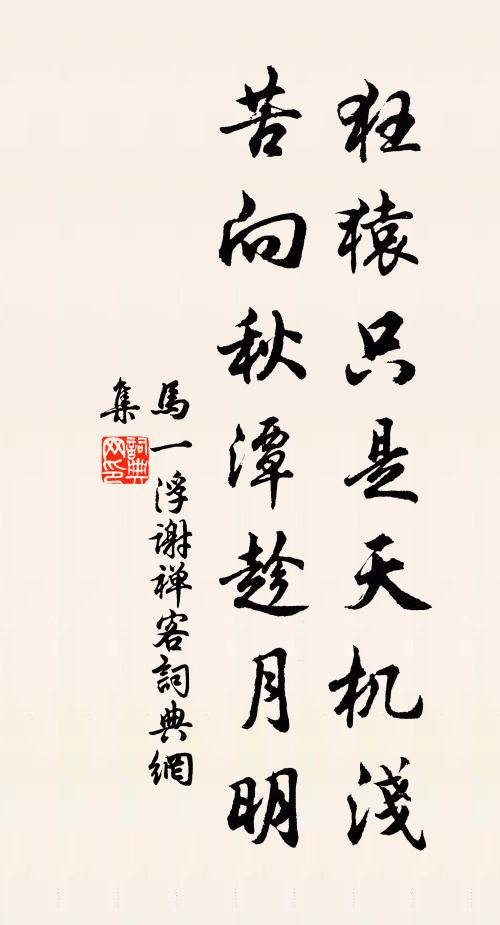 狂猿只是天机淺
苦向秋潭趁月明
馬一浮謝禅客詞典網
集
詞典网印